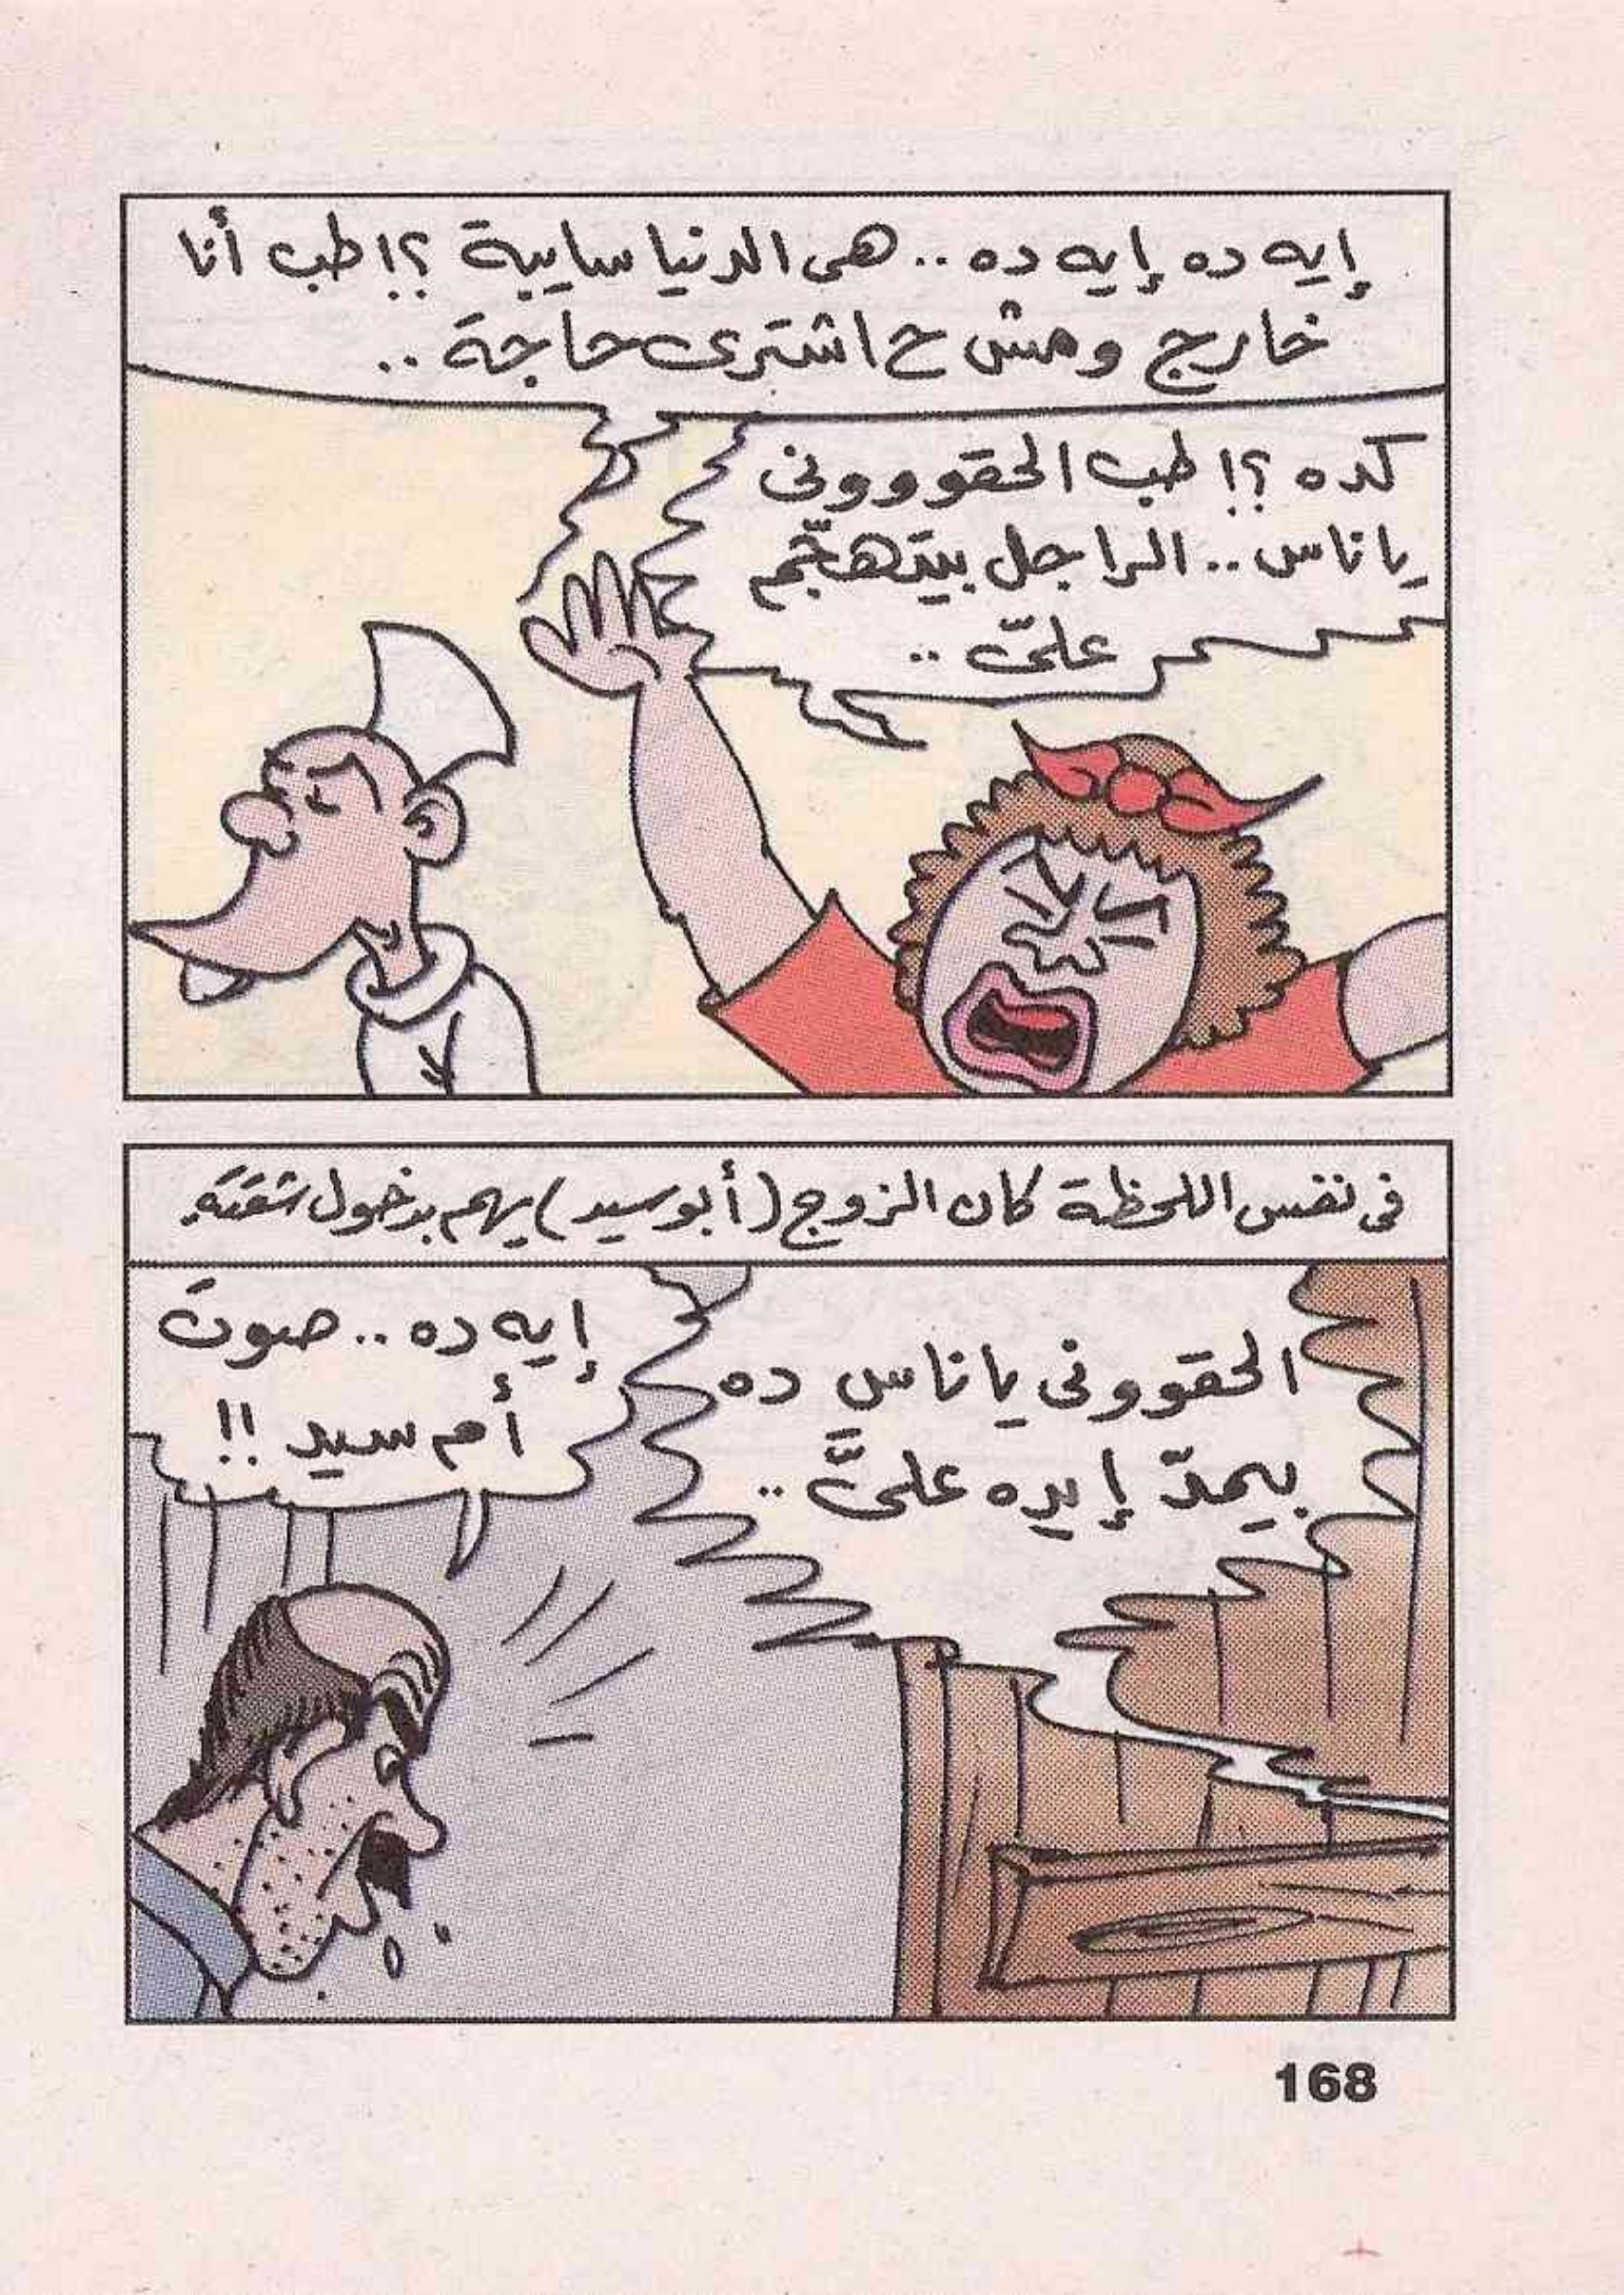 إيه ده إيه ده .. هى الدنيا سايبة ؟! طب أنا
خارج ومش ح اشترى حاجة ..
كده ؟! طب الحقوووونى
يا ناس .. الراجل بيتهجّم
علىّ ..
فى نفس اللحظة كان الزوج (أبو سيد) يهم بدخول شقته.
الحقوونى يا ناس ده
بيمدّ إيده علىَّ ..
إيه ده .. صوت
أم سيد !!
168